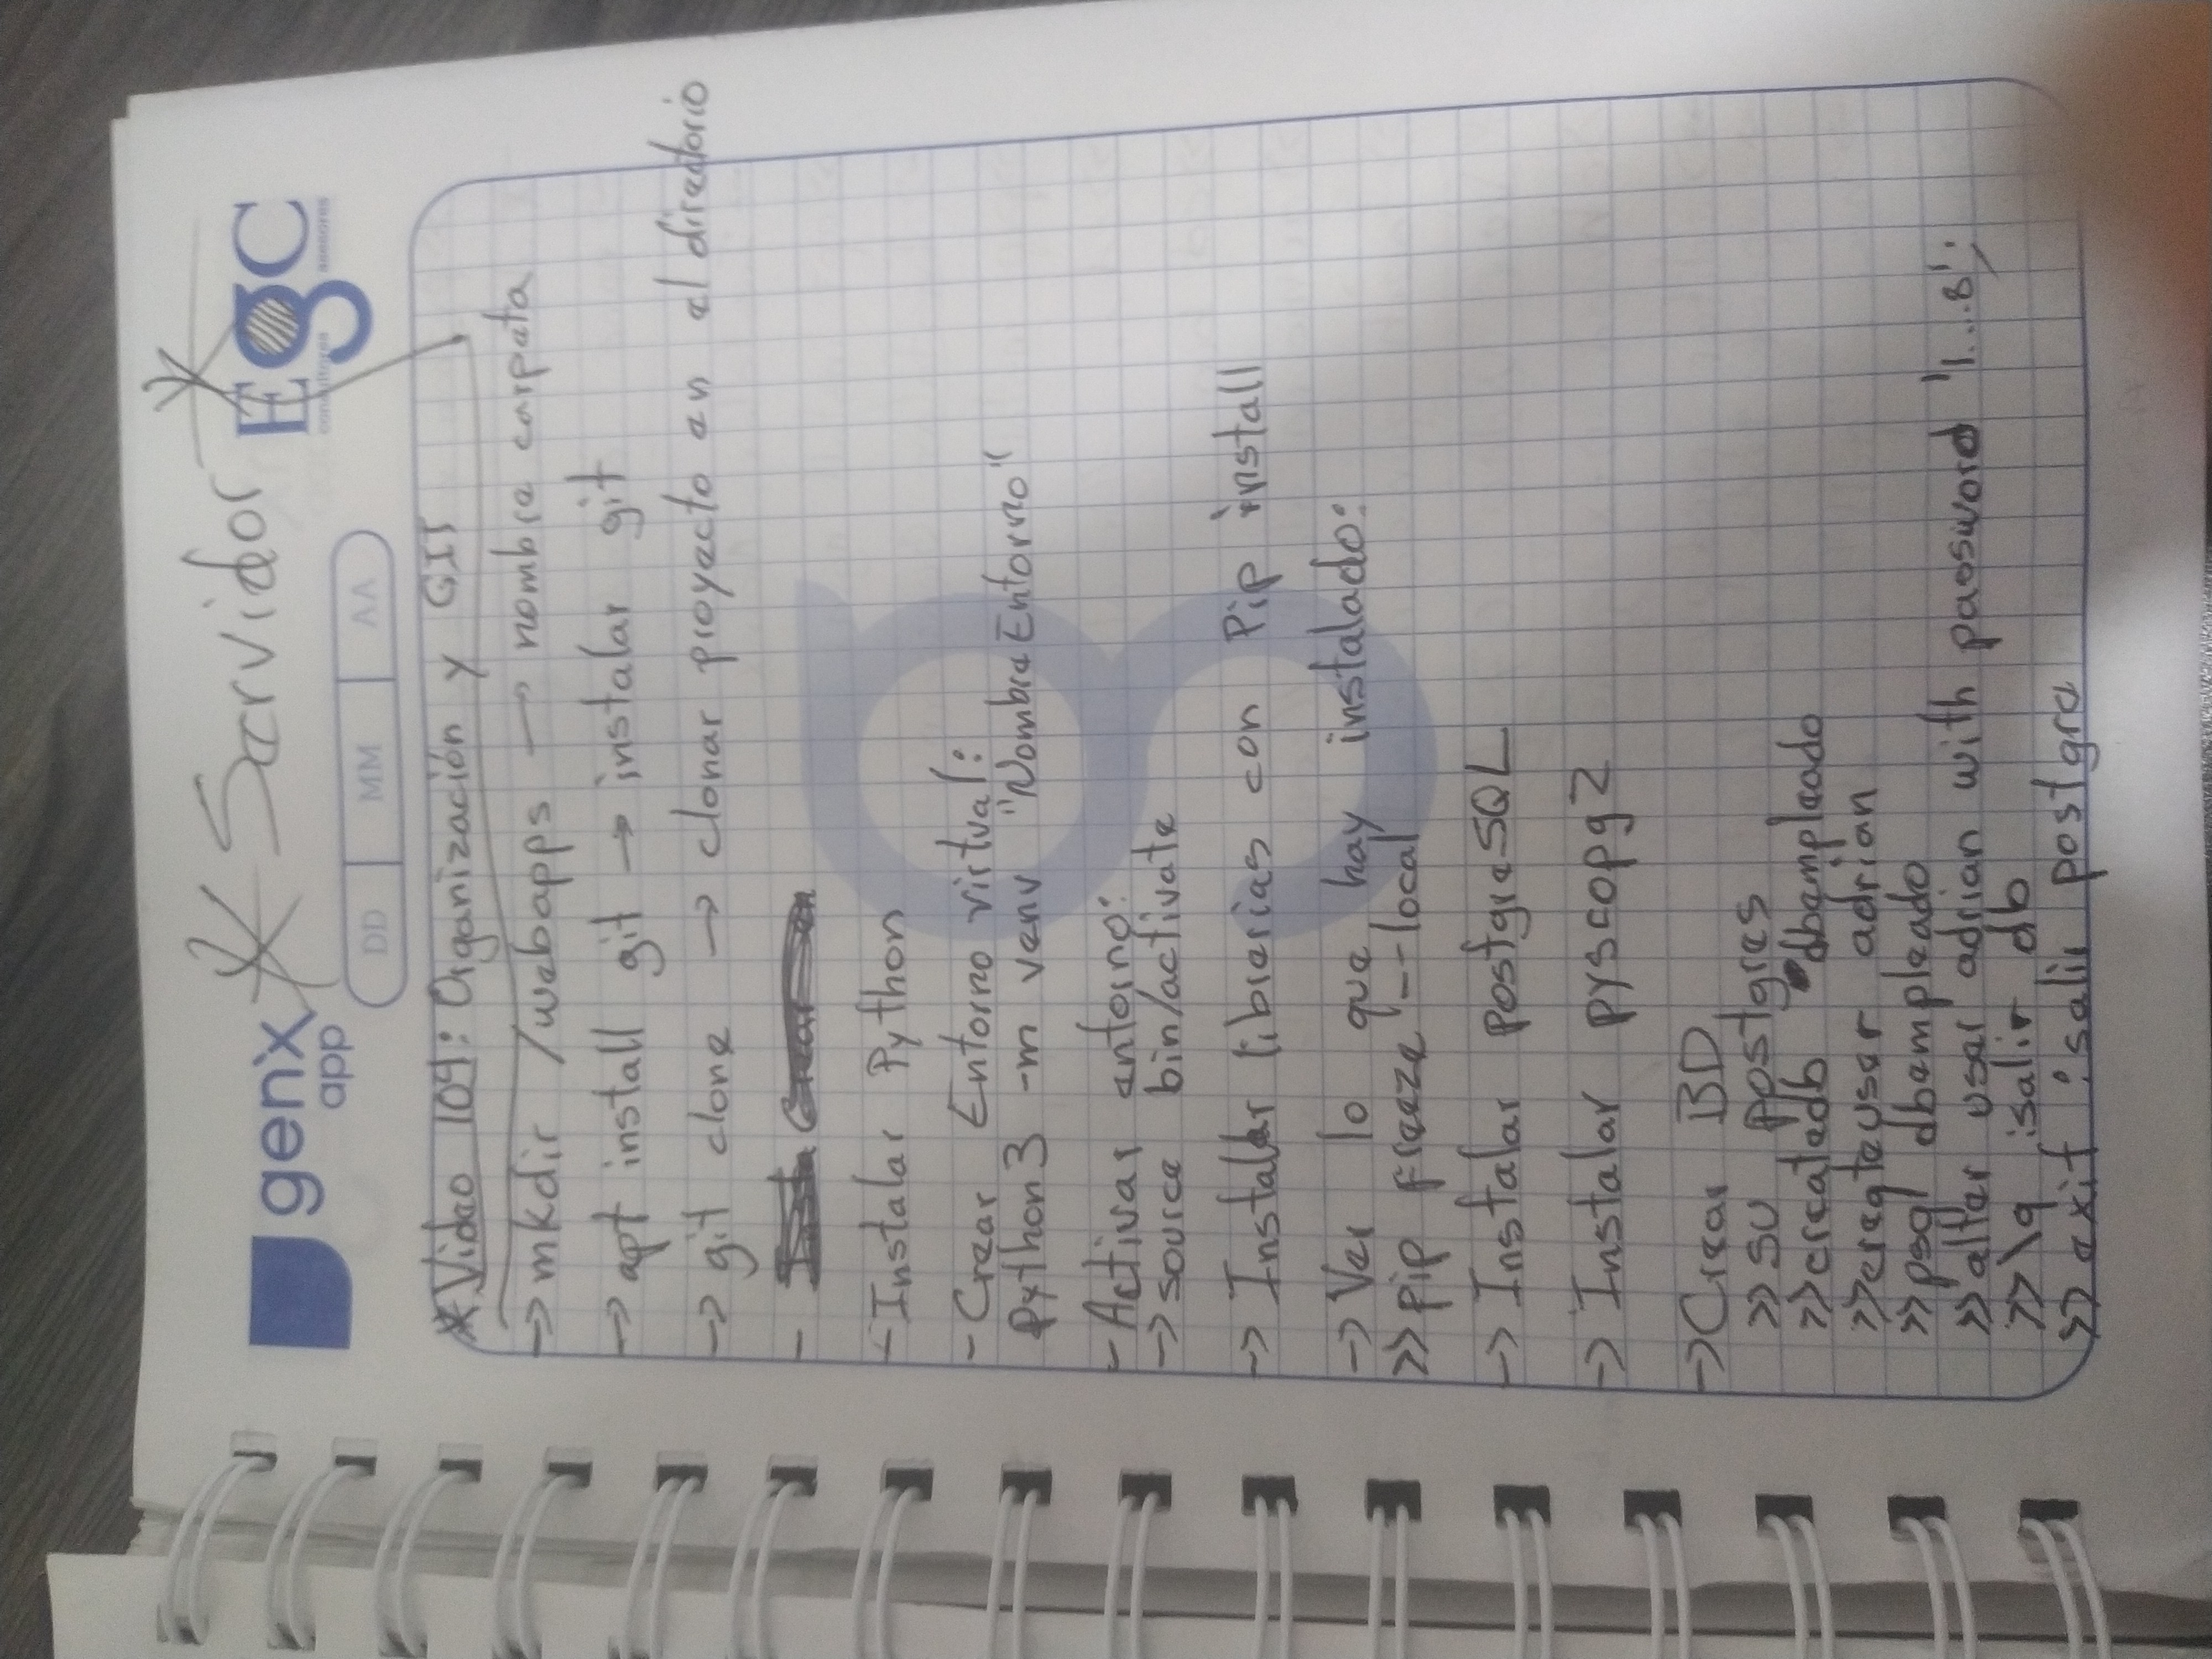 * Servidor *
genx
app
EgC
consultores asesores
DD MM AA
* Video 104: Organización y GIT
-> mkdir /webapps -> nombre carpeta
-> apt install git -> instalar git
-> git clone -> clonar proyecto en el directorio
-
- Instalar Python
- Crear Entorno virtual:
Python3 -m venv "NombreEntorno"
- Activar entorno:
-> source bin/activate
-> Instalar librerias con Pip install
-> Ver lo que hay instalado:
>> pip freeze --local
-> Instalar postgreSQL
-> Instalar pyscopg2
-> Crear BD
>> su postgres
>> createdb dbempleado
>> createuser adrian
>> psql dbempleado
>> alter user adrian with password '1...8';
>> \q :salir db
>> exit :salir postgre